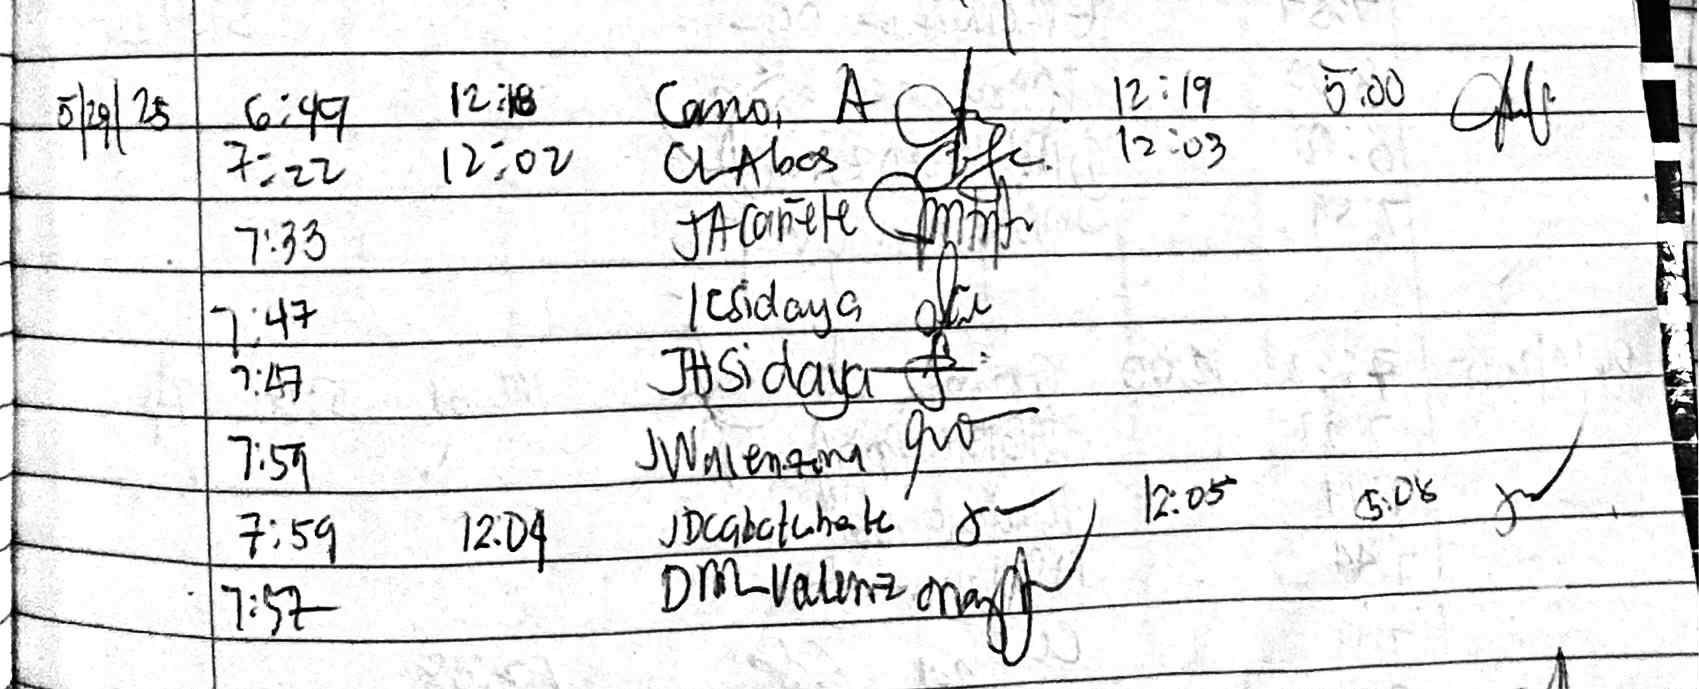 5/29/25 6:49 12:18 Cano, A 12:19 5:00
7:22 12:02 CLAbos 12:03
7:33 JACañete
7:47 ICSidaya
7:47 JHSidaya
7:59 JWalenzona
7:59 12:04 JDcabatuhate 12:05 5:08
7:57 DMValenzona